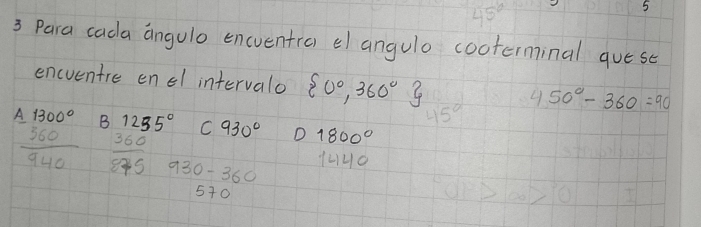 45°
5
3 Para cada ángulo encuentra el angulo cooterminal que se
encuentre en el intervalo {0°, 360° }
450° - 360 = 90
45°
A 1300° B 1235° C 930° D 1800°
360 360 1440
940 875 930 - 360
570